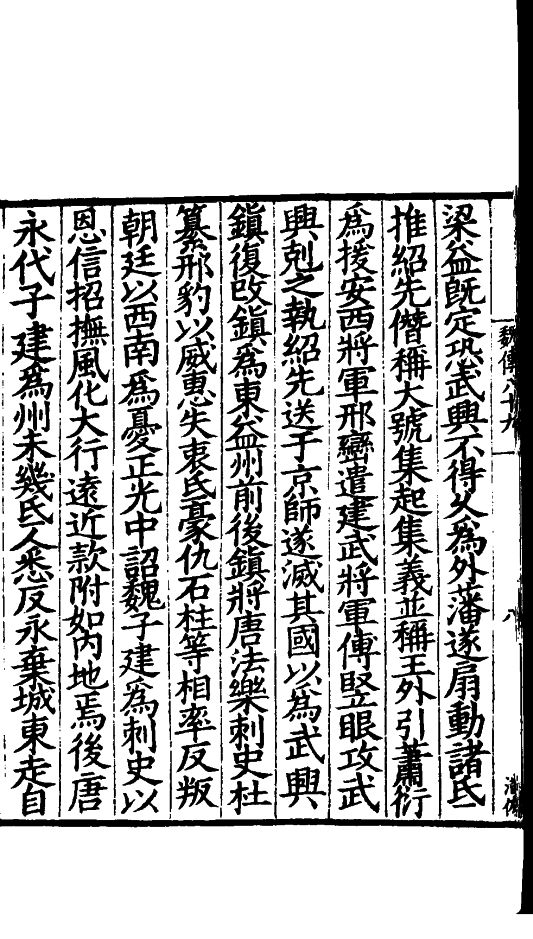 魏傳八十九
八
梁益旣定恐武興不得久爲外藩遂扇動諸氐
推紹先僭稱大號集起集義並稱王外引蕭衍
爲援安西將軍邢巒遣建武將軍傅竪眼攻武
興剋之執紹先送于京師遂滅其國以爲武興
鎮復改鎮爲東益州前後鎮將唐法樂刺史杜
纂邢豹以威惠失衷氐豪仇石柱等相率反叛
朝廷以西南爲憂正光中詔魏子建爲刺史以
恩信招撫風化大行遠近款附如内地焉後唐
永代子建爲州未幾氐人悉反永棄城東走自